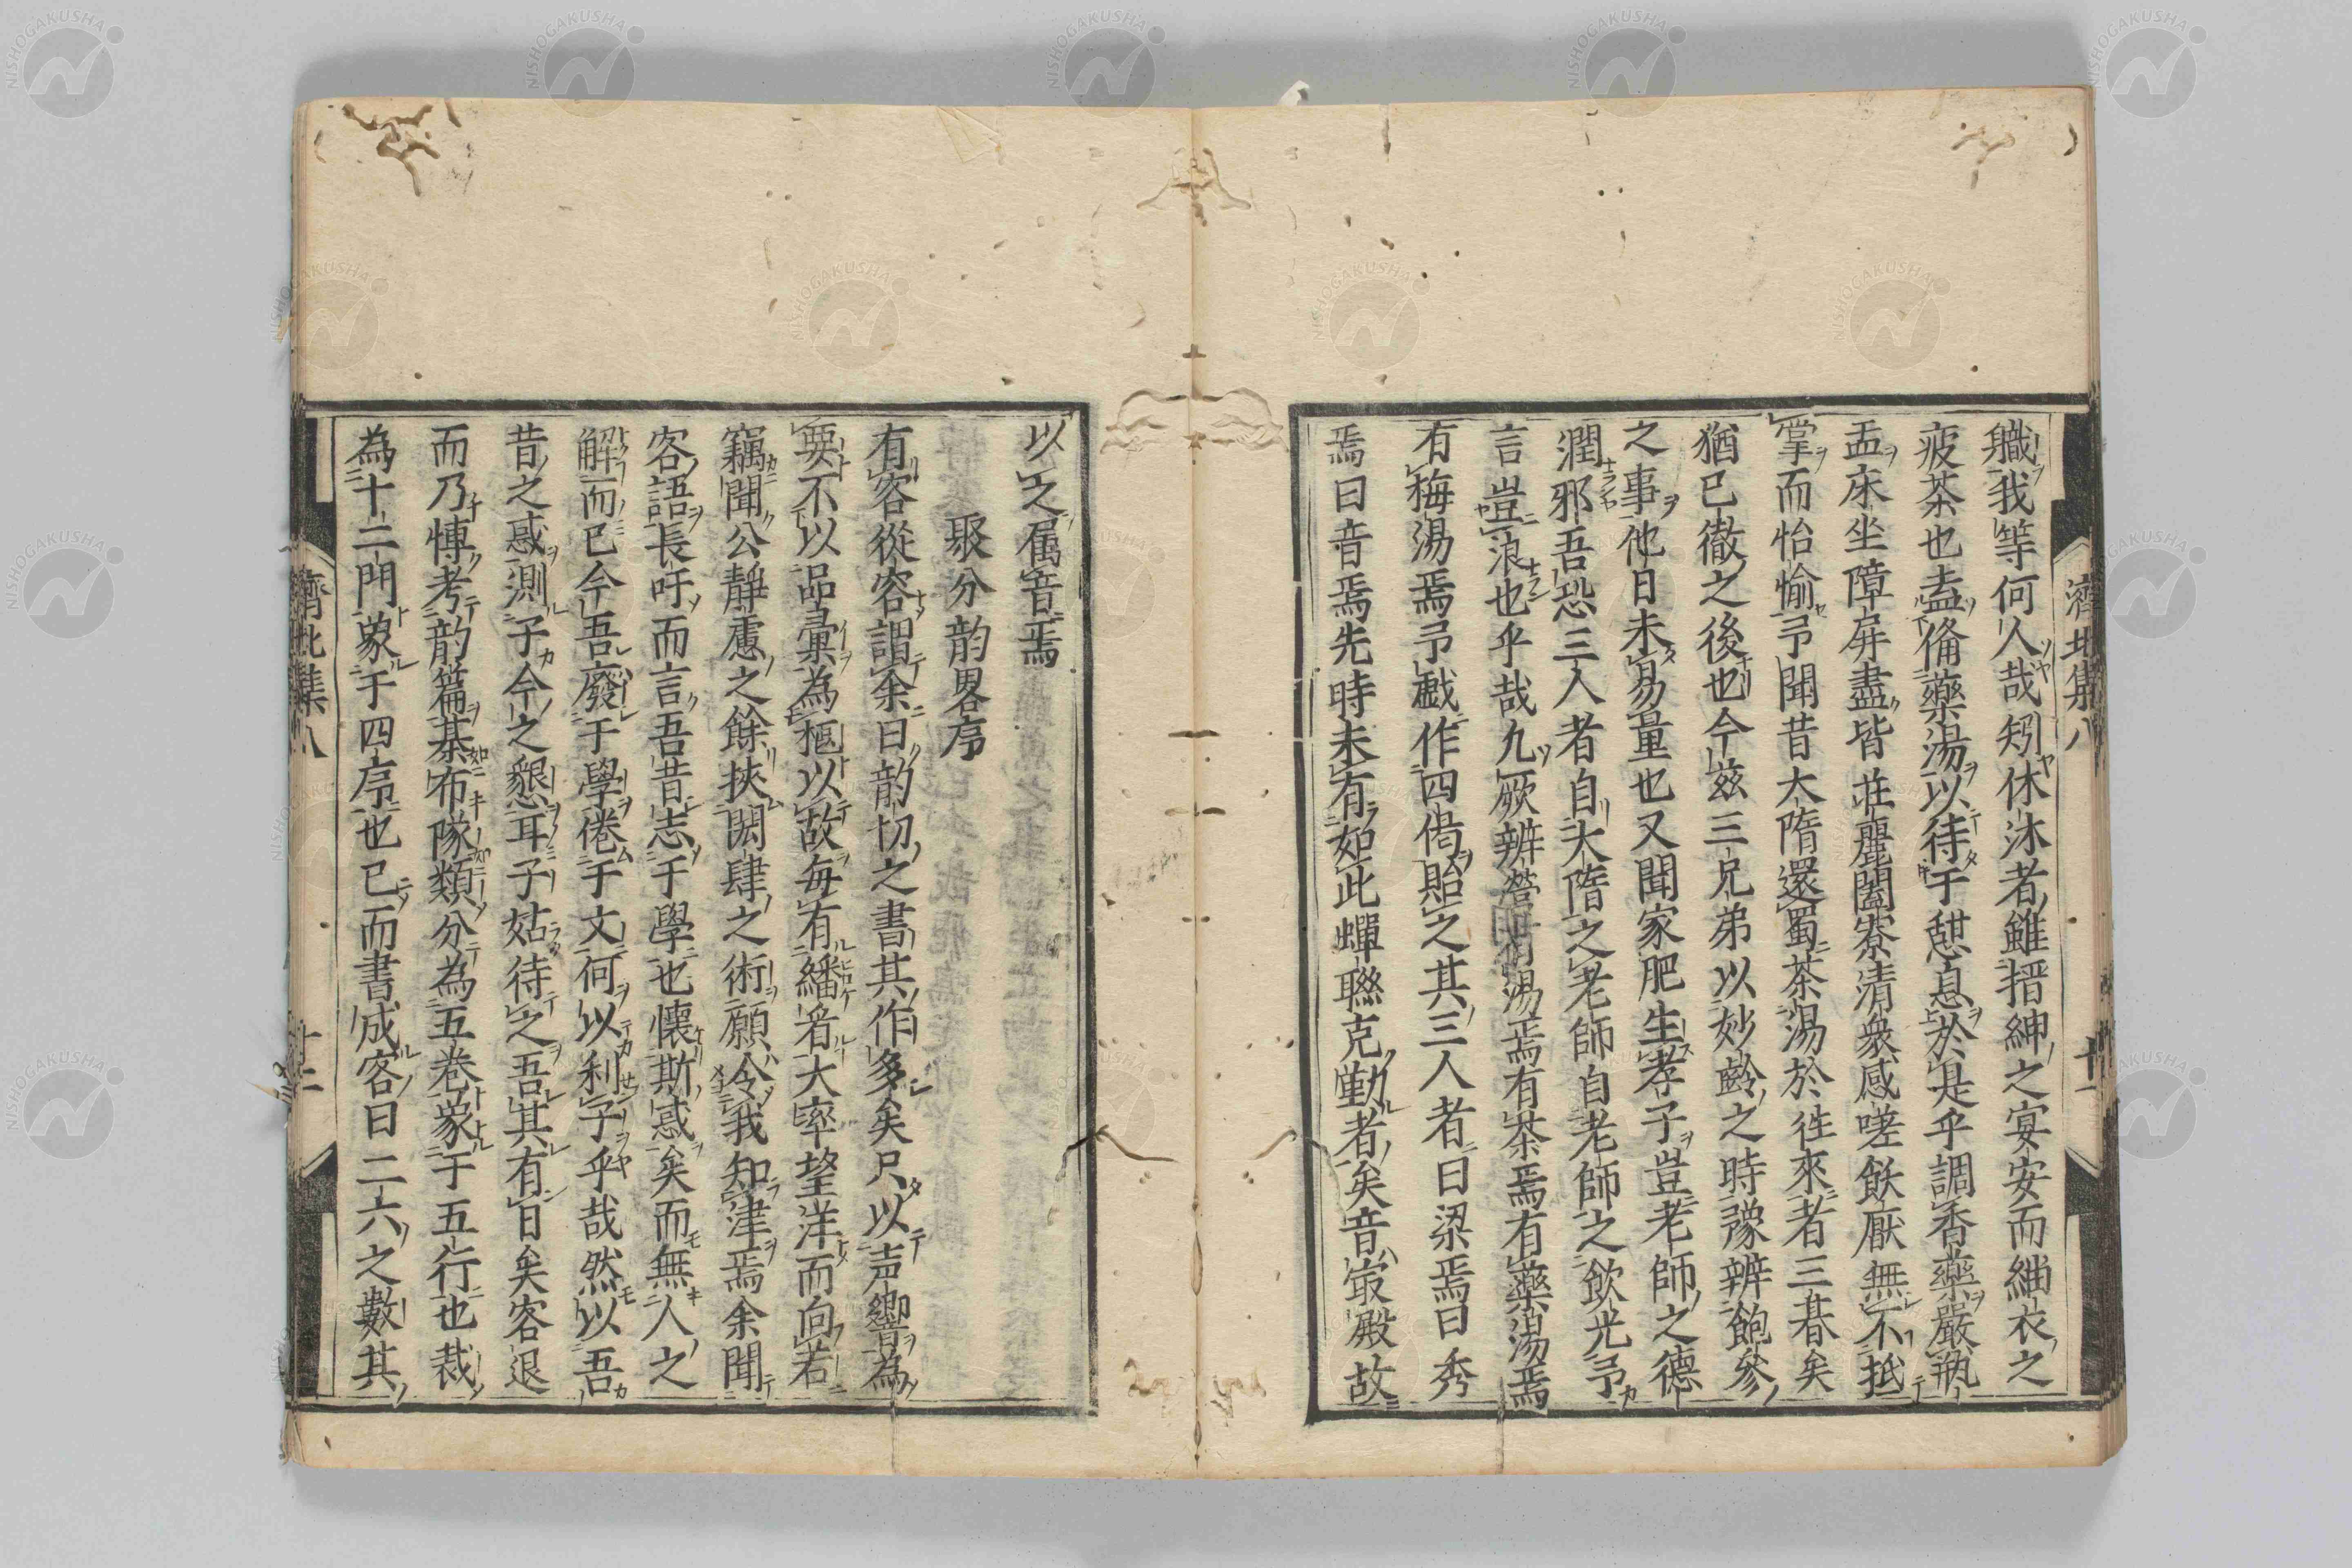 濟北集八
十一
職我等何人哉矧休沐者雖搢紳之宴安而緇衣之
疲茶也盍俻藥湯以待于憩息於是乎調香藥嚴瓶
盂床坐障屏盡皆莊麗闔寮清衆感嗟飫厭無不抵
掌而怡愉予聞昔大隋還蜀茶湯於徃來者三朞矣
猶已徹之後也今茲三兄弟以妙齡之時豫辨飽參
之事他日未易量也又聞家肥生孝子豈老師之德
潤邪吾恐三人者自大隋之老師自老師之飲光予
言豈浪也乎哉九厥辨營湯焉有茶焉有藥湯焉
有梅湯焉予戲作四偈貽之其三人者曰梁焉曰秀
焉曰音焉先時未有如此蟬聯克勤者矣音㝡殿故
以之属音焉
聚分韵畧序
有客從容謂余曰韵切之書其作多矣只以声響為
要不以品彙為樞以故每有繙者大率望洋而向若
竊聞公靜慮之餘挾閎肆之術願令我知津焉余聞
客語長吁而言吾昔志于學也懷斯惑矣而無人之
解而已今吾廢于學倦于文何以利子乎哉然以吾
昔之惑測子今之懇耳子姑待之吾其有日矣客退
而乃慱考韵篇棊布隊類分為五卷蒙于五行也裁
為十二門蒙于四序也已而書成客曰二六之數其
濟北集八
十二